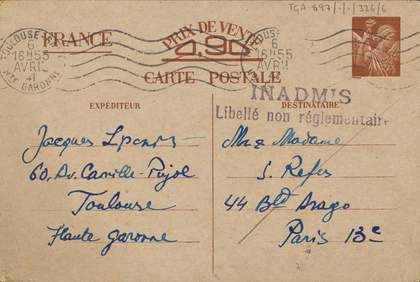 TGA 897/-/-/326/6
TOULOUSE
6
16H55
AVRIL
41
HTE GARONNE
FRANCE
PRIX DE VENTE
0,90
CARTE POSTALE
INADMIS
Libellé non réglementaire
EXPÉDITEUR
Jacques
60, Av. Camille-Pujol
Toulouse
Haute garonne
DESTINATAIRE
Mr & Madame
S.
44 Bld Arago
Paris 13e